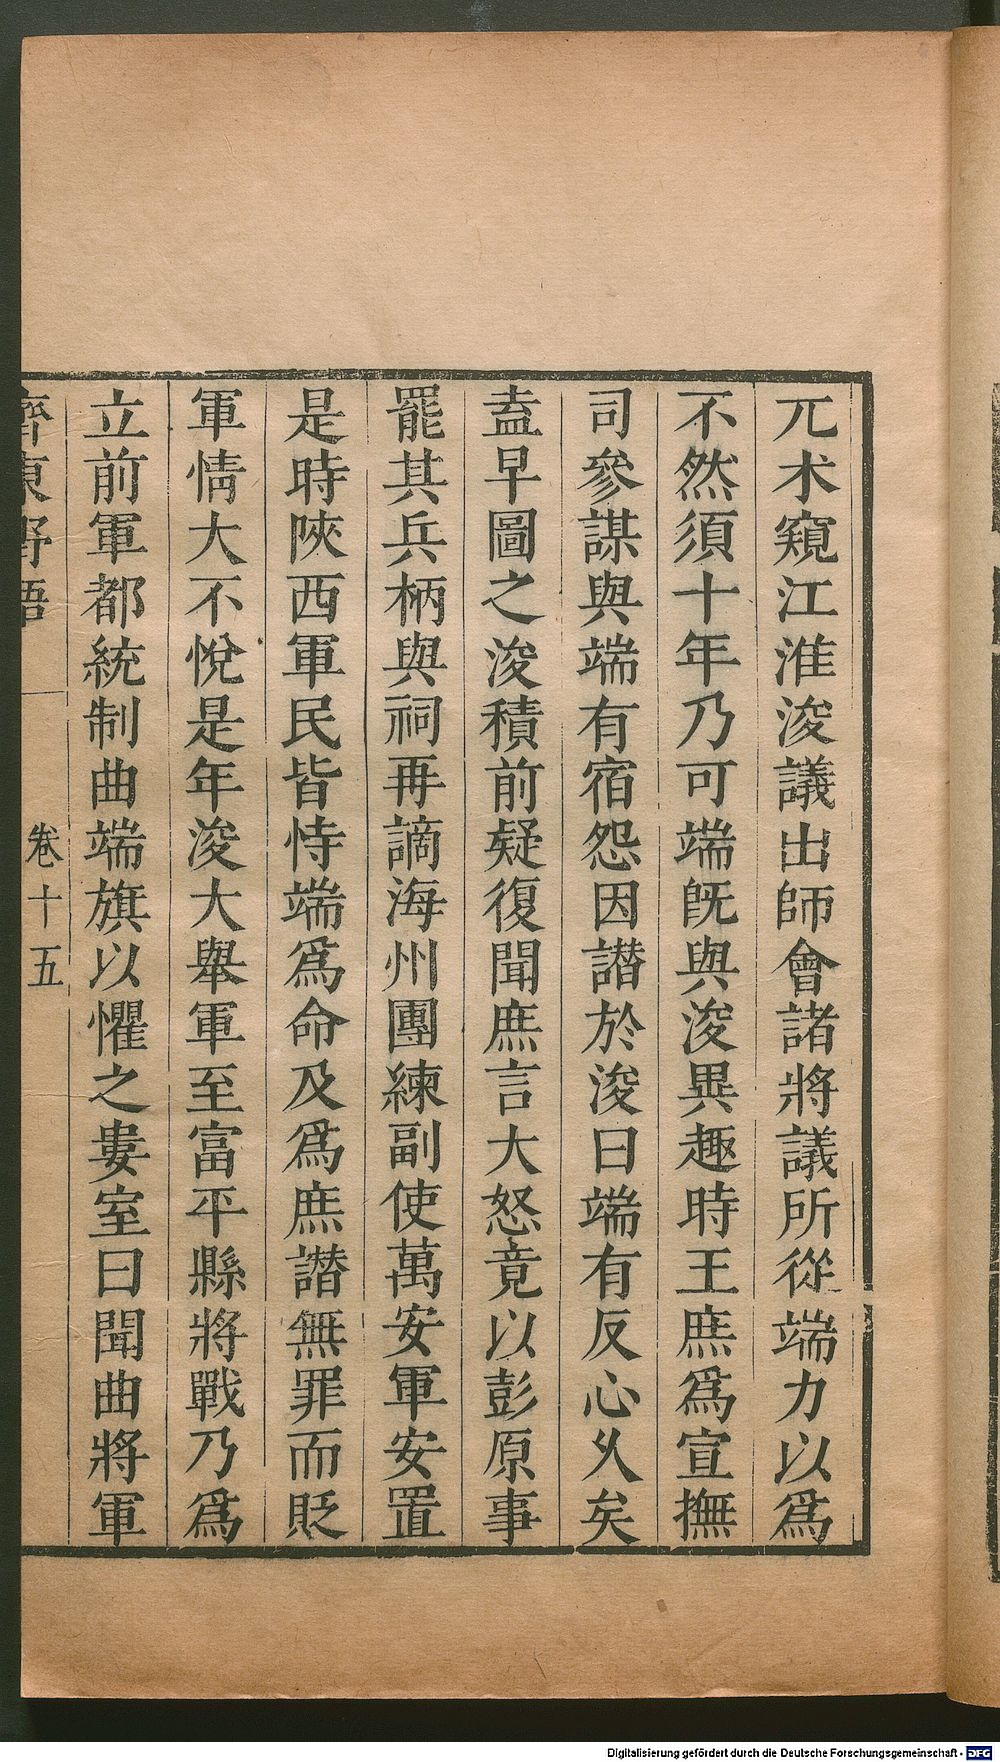 兀术窺江淮浚議出師會諸將議所從端力以爲
不然須十年乃可端旣與浚異趣時王庶爲宣撫
司參謀與端有宿怨因譖於浚曰端有反心久矣
盍早圖之浚積前疑復聞庶言大怒竟以彭原事
罷其兵柄與祠再謫海州團練副使萬安軍安置
是時陜西軍民皆恃端爲命及爲庶譖無罪而貶
軍情大不悅是年浚大舉軍至富平縣將戰乃爲
立前軍都統制曲端旗以懼之婁室曰聞曲將軍
齊東野語 卷十五
Digitalisierung gefördert durch die Deutsche Forschungsgemeinschaft - DFG